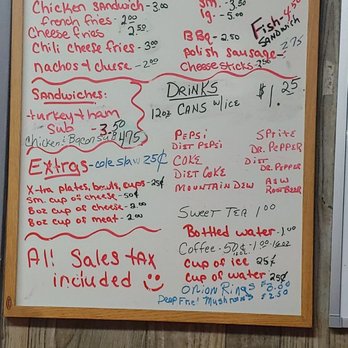 Chicken Sandwich - 3.00
french fries - 2.00
Cheese fries 2.50
Chili cheese fries - 3.00
nachos & cheese - 2.00
Sm. - 3.00
lg. - 5.00
BBQ - 2.50
polish sausage - 2.75
Cheese sticks
Fish - 4.50
SANDWICH
Sandwiches:
turkey & ham
Sub - 3.50
Chicken & Bacon Sub 4.75
Extras - cole slaw 25¢
X-tra plates, bowls, cups - 25¢
sm. cup of cheese - 50¢
8oz cup of cheese - 2.00
8oz cup of meat - 2.00
All Sales tax
included
DRINKS
12oz CANS w/ICE $1.25
PEPSI
DIET PEPSI
COKE
DIET COKE
MOUNTAIN DEW
SPRITE
DR. PEPPER
DIET
DR. PEPPER
A&W
ROOT BEER
SWEET TEA 1.00
Bottled water - 1.00
Coffee - 50¢ - 1.00 - 16oz
cup of ice 25¢
cup of water 25¢
ONION Rings $3.00
Deep Fried Mushrooms $2.50